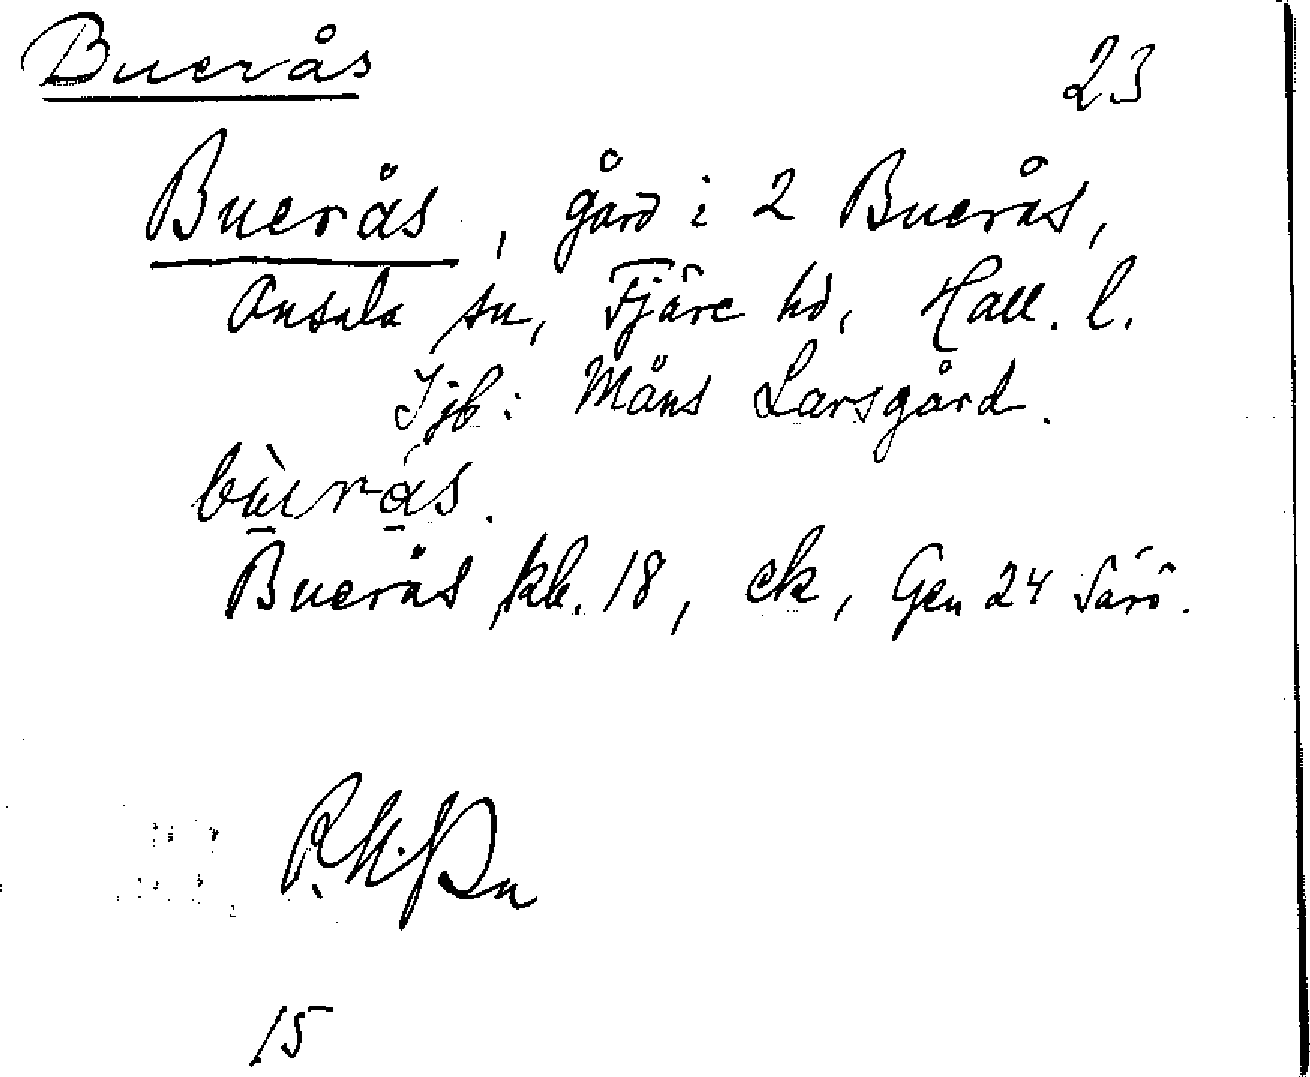 Buerås 23
Buerås, gård i 2 Buerås,
Onsala sn, Fjäre hd, Hall. l.
Jjb: Måns Larsgård.
bùerås.
Buerås kb. 18, ek, Gen 24 Särö.
15